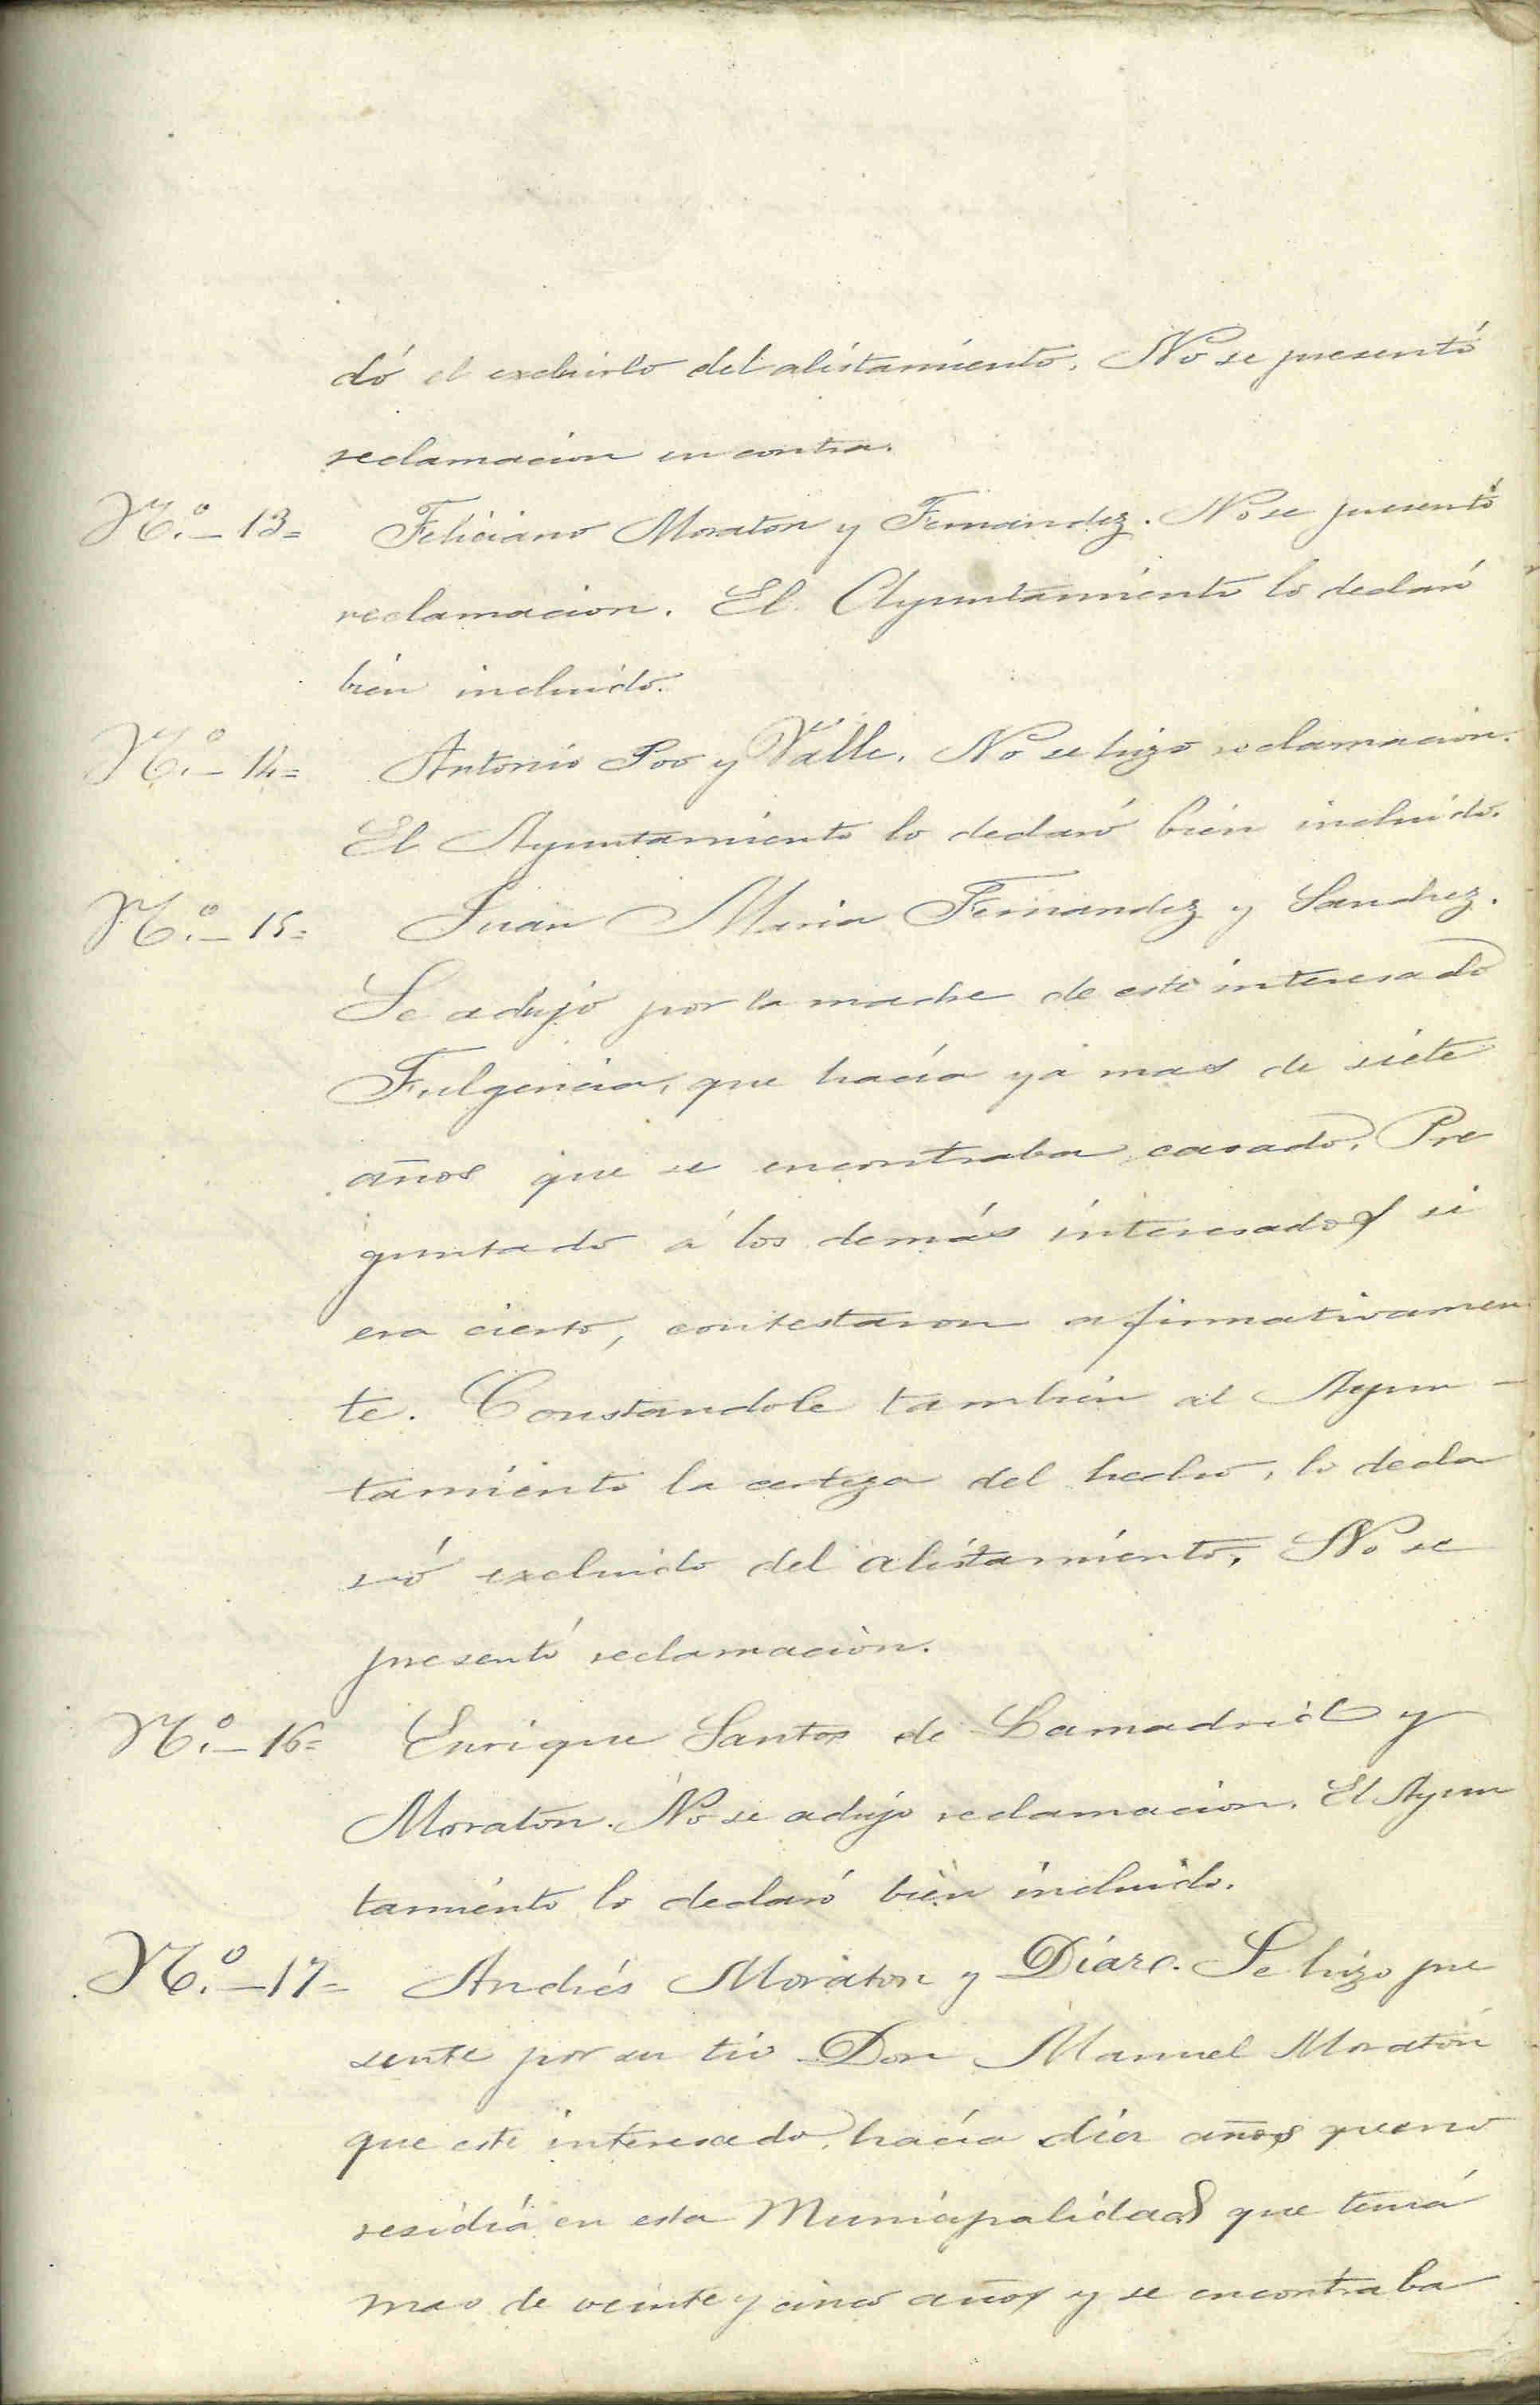 dó el excluirlo del alistamiento. No se presentó
reclamacion en contra.
N.º - 13 = Feliciano Moraton y Fernandez. No se presentó
reclamacion. El Ayuntamiento lo declaró
bien incluido.
N.º - 14 = Antonio Poo y Valle. No se hizo reclamacion.
El Ayuntamiento lo declaró bien incluido.
N.º - 15 = Juan Maria Fernandez y Sanchez.
Se adujo por la madre de este interesado
Fulgencia, que hacía ya mas de siete
años que se encontraba casado. Pre
guntado á los demás interesados si
era cierto, contestaron afirmativamen
te. Constandole tambien al Ayun -
tamiento la certeza del hecho, lo decla
ró excluido del alistamiento. No se
presentó reclamación.
N.º - 16 = Enrique Santos de Lamadrid y
Moraton. No se adujo reclamacion. El Ayun
tamiento lo declaró bien incluido.
N.º - 17 = Andrés Moraton y Díaz. Se hizo pre
sente por su tio Don Manuel Moratón
que este interesado, hacía diez años que no
residía en esta Municipalidad que tenía
mas de veinte y cinco años y se encontraba